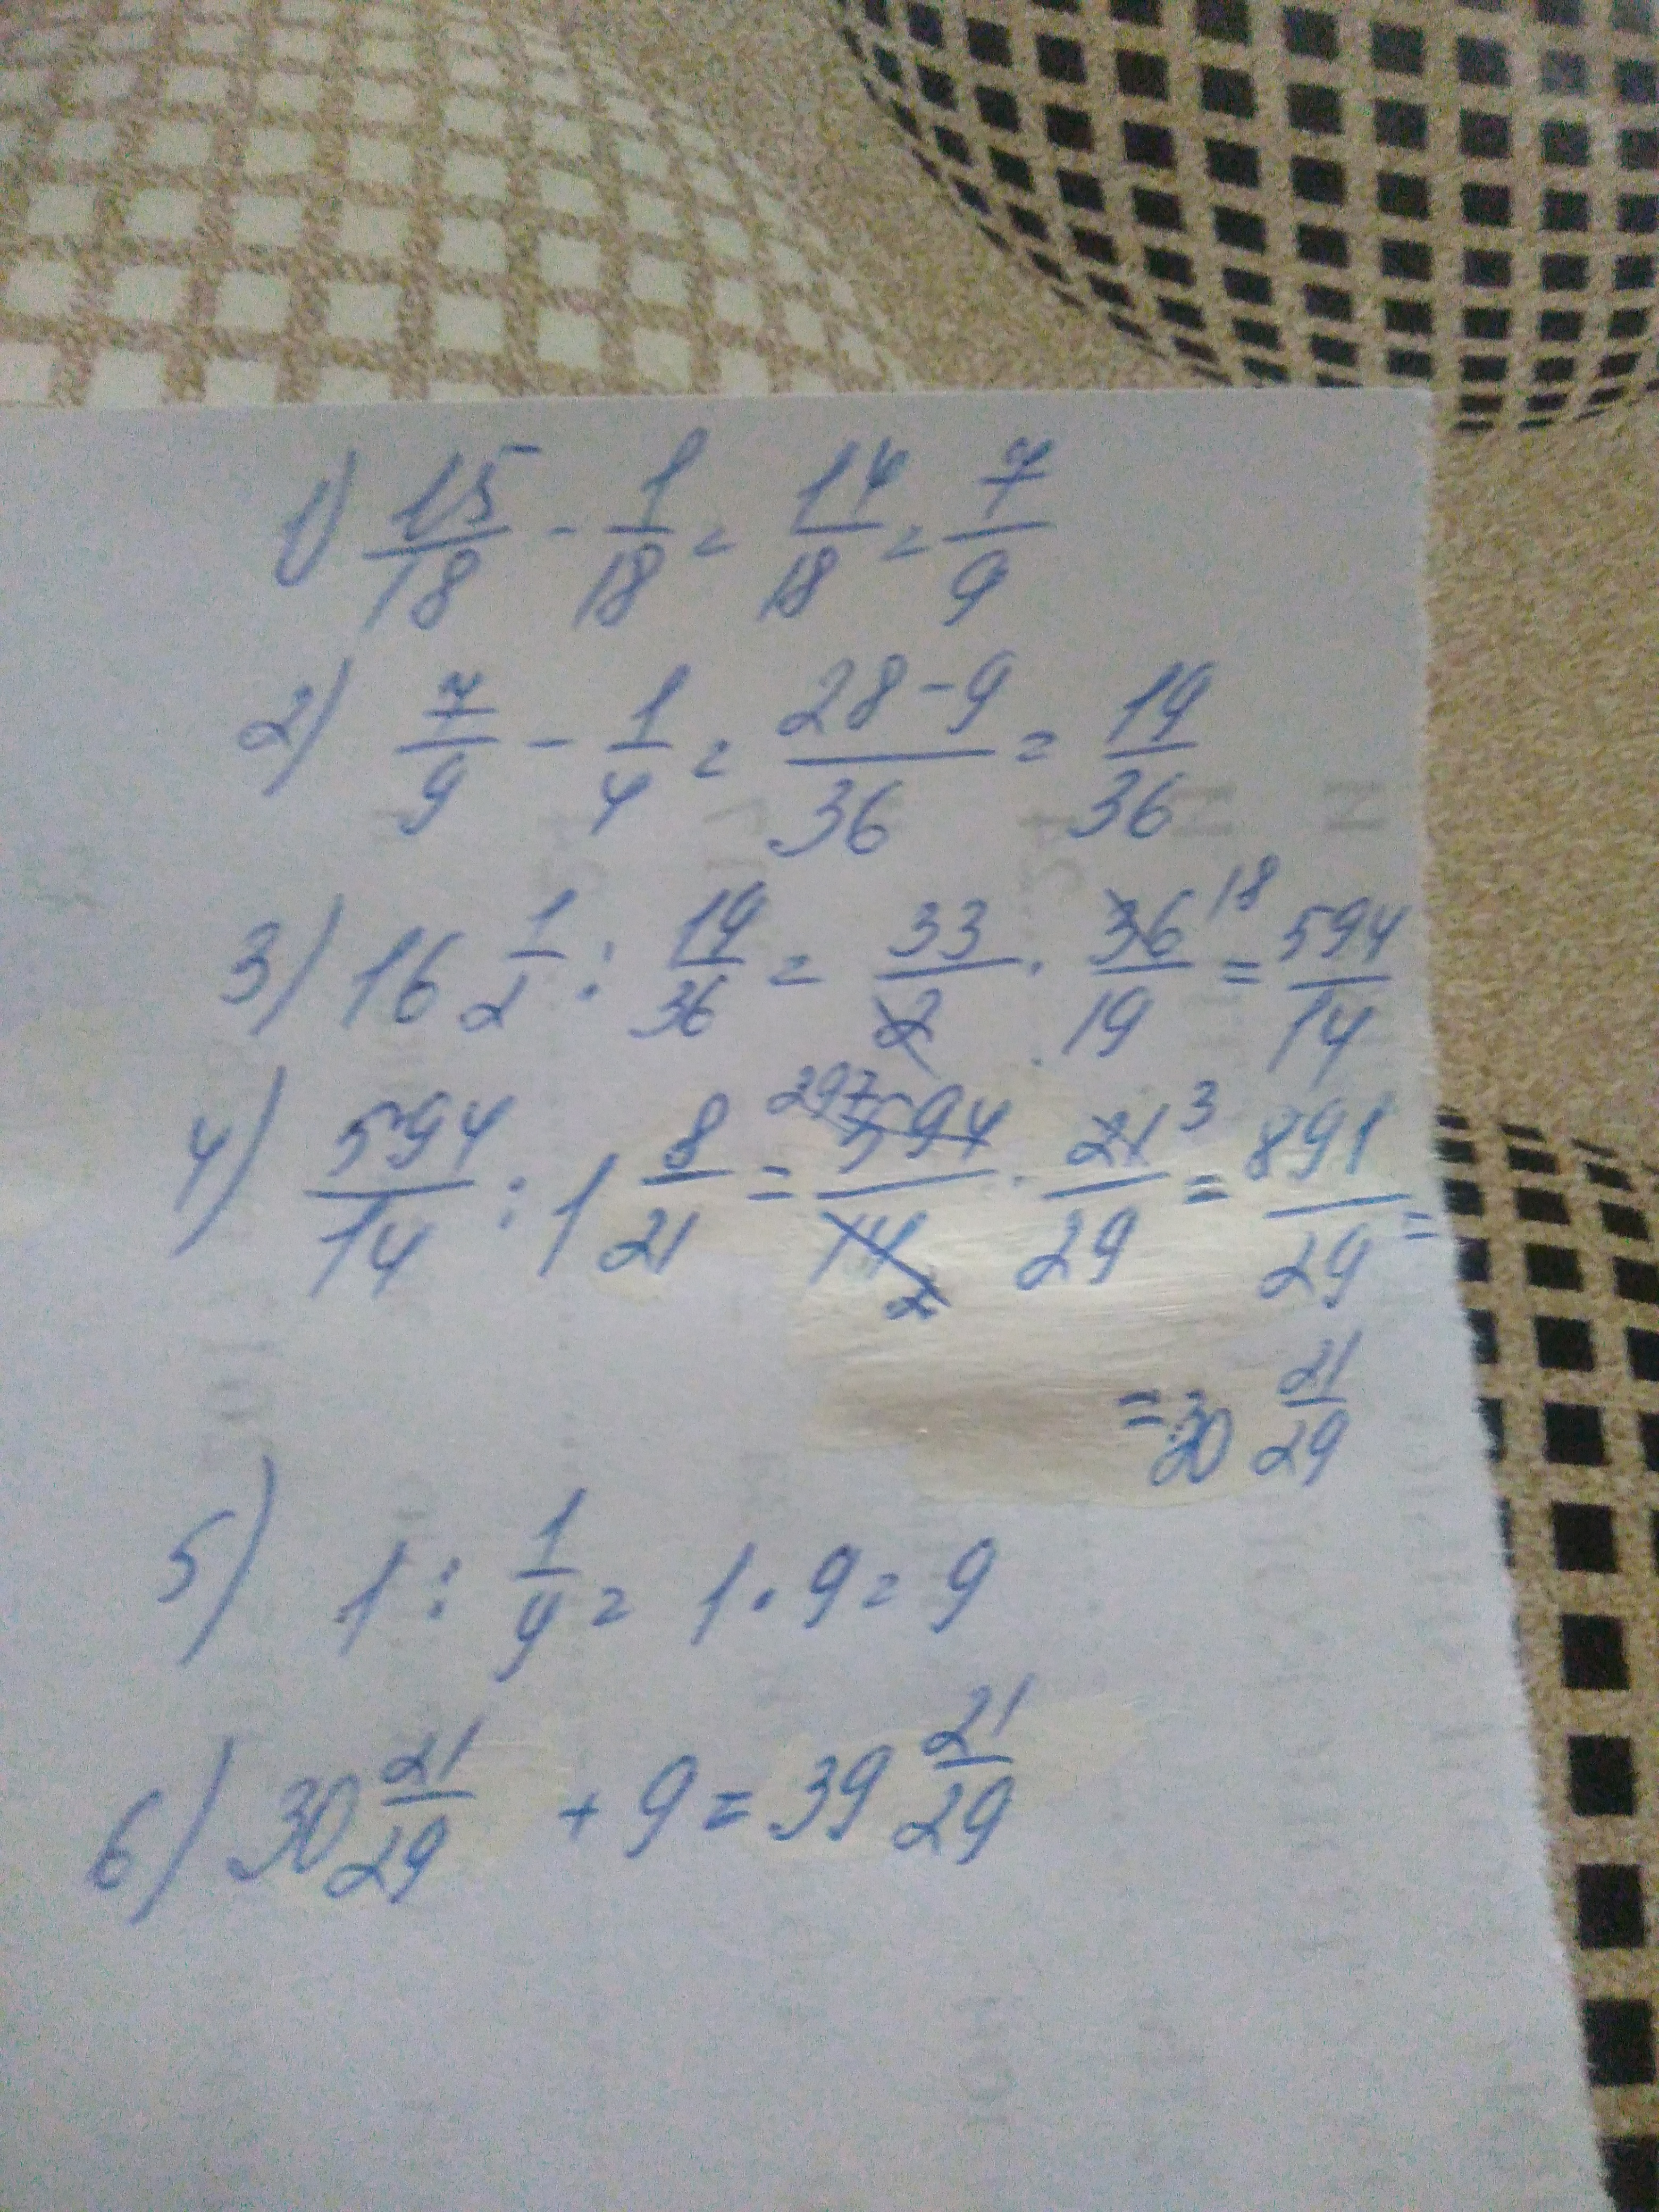 1) 15/18 - 1/18 = 14/18 = 7/9
2) 7/9 - 1/4 = 28-9/36 = 19/36
3) 16 1/2 : 19/36 = 33/2 · 36/19 18 = 594/14
4) 594/14 : 1 8/21 = 297 594/14 2 · 21/29 3 = 891/29 =
= 30 21/29
5) 1 : 1/9 = 1 · 9 = 9
6) 30 21/29 + 9 = 39 21/29